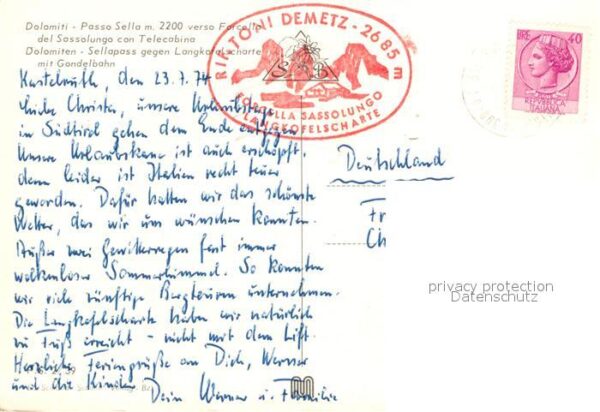 Dolomiti - Passo Sella m. 2200 verso Forcella
del Sassolungo con Telecabina
Dolomiten - Sellapass gegen Langkofelscharte
mit Gondelbahn
RIF. TONI DEMETZ - 2685 m
FORCELLA SASSOLUNGO
LANGKOFELSCHARTE
LIRE 40
REPVBBLICA
ITALIANA
Kastelruth, den 23.7.74
Liebe Christa, unsere Urlaubstage
in Südtirol gehen dem Ende entgegen
Unsere Urlaubskasse ist auch erschöpft,
denn leider ist Italien recht teuer
geworden. Dafür hatten wir das schönste
Wetter, das wir uns wünschen konnten.
Außer zwei Gewitterregen fast immer
wolkenloser Sommerhimmel. So konnten
wir viele zünftige Bergtouren unternehmen.
Die Langkofelscharte haben wir natürlich
zu Fuß erreicht - nicht mit dem Lift.
Herzliche Feriengrüße an Dich, Werner
und die Kinder Dein Werner u. Familie
Deutschland
Fr
Ch
privacy protection
Datenschutz